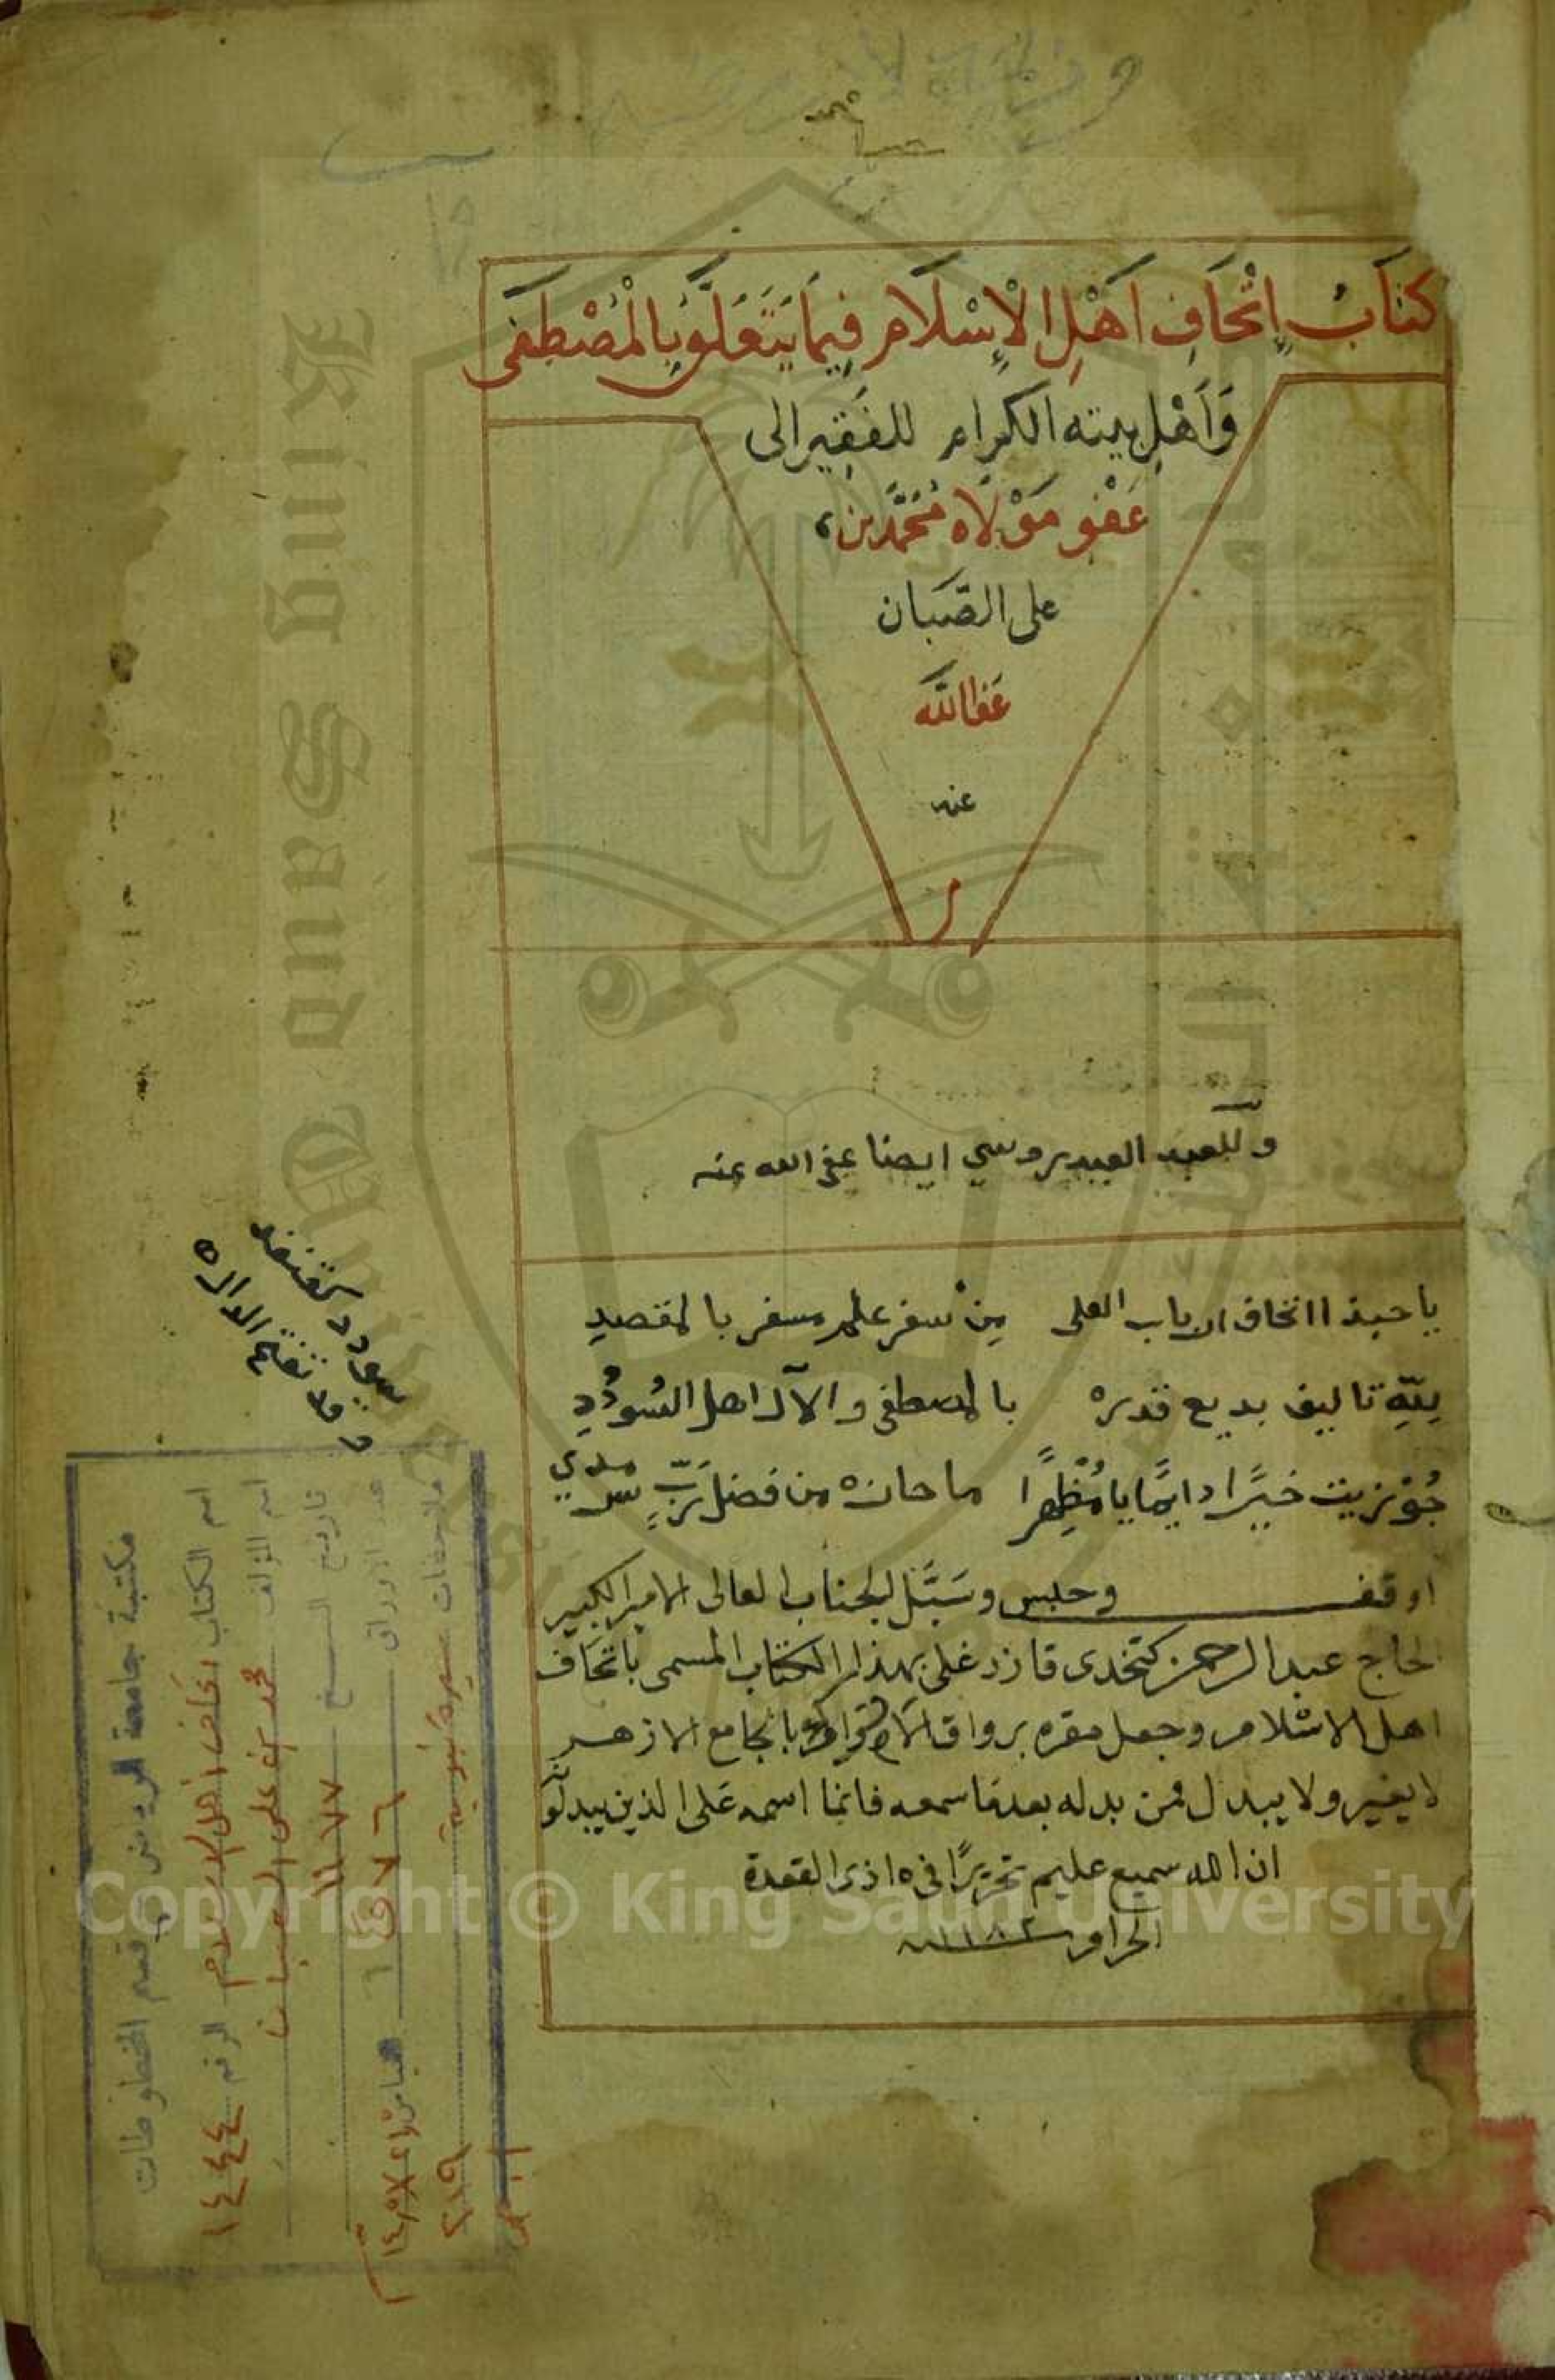 كتَابُ إِتْحَافِ اَهْلِ الْإِسْلَام فِيمَا يَتَعَلَّق بِالْمُصْطَفَى
وَاَهْلِ بيته الكِرام للفَقِير الى
عَفْو مَوْلَاه مُحَمَّد بن
على الصَّبَان
عَفَا اللّٰه
عنه
وللعبد العيدروسي ايضا عفى الله عنه
يا حبذا اتحاف ارباب العلى من سفر علم مسفر بالمقصدِ
لِلّهِ تاليف بديع قدره بالمصطفى والآل اهل السُوُّدُدِ
جُوْزيت خيرًا دايمًا يا مُظْهِرًا ما حازه من فضل رَبٍّ سرمدي
اوقف وحبس وسَبَّل الجناب العالى الامير الكبير
الحاج عبد الرحمن كتخدى قازدغلى بهذا الكتاب المسمى باتحاف
اهل الاسلام وجعل مقره برواق بالجامع الازهر
لا يغير ولا يبدل فمن بدله بعد ما سمعه فانما اسمه عَلى الذين يبدلونه
ان الله سميع عليم تحريرًا فى ١٥ ذى القعدة
الحرام سنة ١١٨٢
مكتبة جامعة الرياض قسم المخطوطات
اسم الكتاب اتحاف أهل الاسلام الرقم ١٤٤٤
اسم المؤلف محمد بن على الصبان
تاريخ النسخ ١١٧٧
عدد الاوراق ٧٦ ق
ملاحظات سيرة نبوية ٢١٩
Copyright © King Saud University
King Saud University